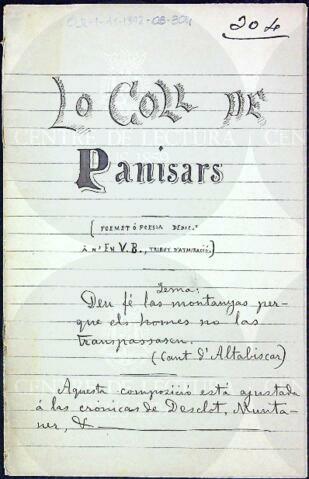 204
Lo Coll de
Panisars
(Poemet ó poesia dedic.ª
á n'En V.B., tribut d'atmiració.)
Lema:
Deu fé las montanyas per-
que els homes no las
transpassasen.
(Cant d'Altabiscar)
Aquesta composició está ajustada
á las crónicas de Desclot, Munta-
ner, &